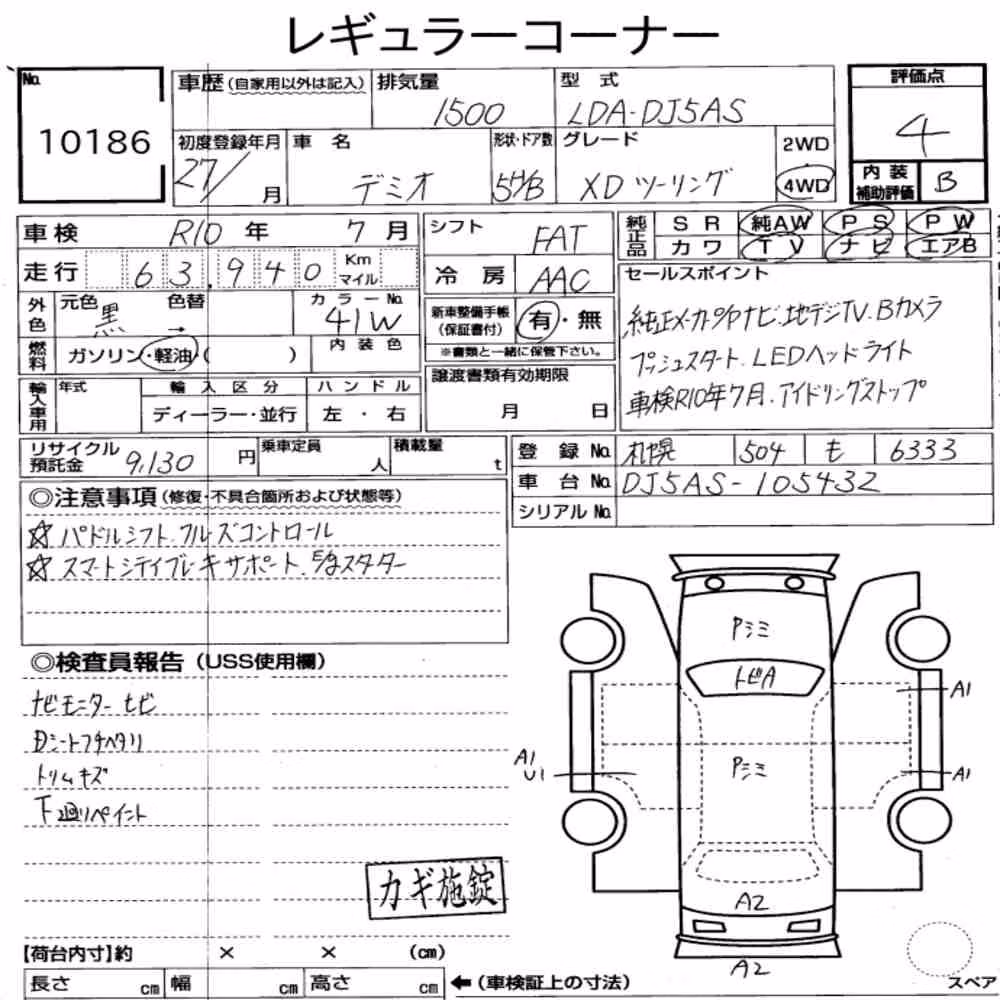 レギュラーコーナー
No. 10186
車歴 (自家用以外は記入) 排気量 1500 型 式 LDA-DJ5AS
評価点 4
初度登録年月 27/ 月 車 名 デミオ 形状・ドア数 5H/B グレード XDツーリング 2WD 4WD
内 装 補助評価 B
車 検 R10 年 7 月
走 行 63,940 Km マイル
シフト FAT
冷 房 AAC
純正品 S R 純AW P S P W
カワ T V ナビ エアB
外色 元色 黒 色替 → カラーNo. 41W
燃料 ガソリン・軽油( ) 内 装 色
新車整備手帳 (保証書付) 有・無
※書類と一緒に保管下さい。
セールスポイント
純正メーカーOPナビ.地デジTV.Bカメラ
プッシュスタート.LEDヘッドライト
車検R10年7月.アイドリングストップ
輸入車用 年式 輸 入 区 分 ハ ン ド ル
ディーラー・並行 左 ・ 右
譲渡書類有効期限
月 日
リサイクル預託金 9,130 円 乗車定員 人 積載量 t
登 録 No. 札幌 504 も 6333
車 台 No. DJ5AS-105432
シリアルNo.
◎注意事項 (修復・不具合箇所および状態等)
☆パドルシフト.クルーズコントロール
☆スマートシティブレーキサポート. スターター
◎検査員報告 (USS使用欄)
ナビモニターヒビ
Dシートフチヘタリ
トリムキズ
下廻りペイント
カギ施錠
Pミミ
トビA
A1
Pミミ
A1
U1
A1
A2
A2
【荷台内寸】約 × × (cm)
長さ cm 幅 cm 高さ cm ←(車検証上の寸法)
スペア